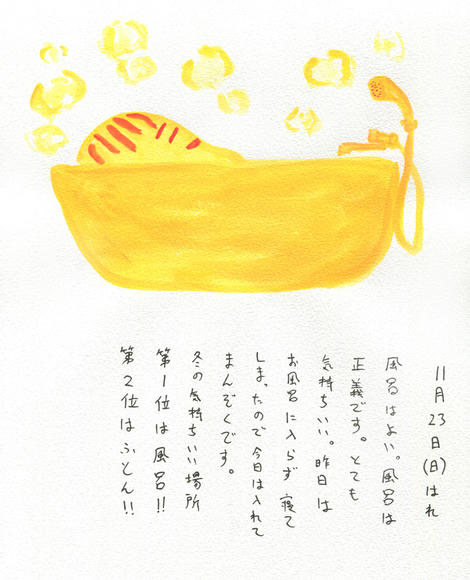 11月23日(日)はれ
風呂はよい。風呂は
正義です。とても
気持ちいい。昨日は
お風呂に入らず寝て
しまったので今日は入れて
まんぞくです。
冬の気持ちいい場所
第1位は風呂!!
第2位はふとん!!